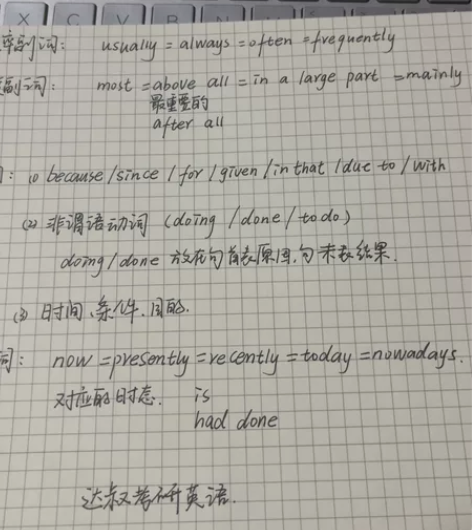 X C V B N
率副词: usually = always = often = frequently
副词: most = above all = in a large part = mainly
最重要的
after all
: (1) because / since / for / given / in that / due to / with
(2) 非谓语动词 (doing / done / to do)
doing / done 放在句首表原因,句末表结果.
(3) 时间、条件、目的.
词: now = presently = recently = today = nowadays.
对应的时态. is
had done
达叔考研英语.